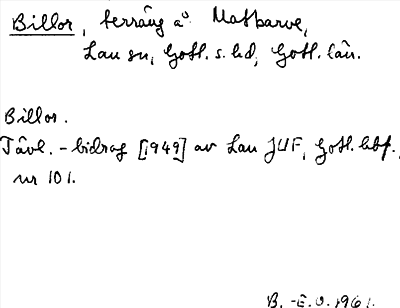 Billor, terräng å Matbarve,
Lau sn, Gotl. s. hd, Gotl. län.
Billor.
Tävl. - bidrag [1949] av Lau JUF, Gotl. hbf.,
nr 101.
B.-E.O. 1961.